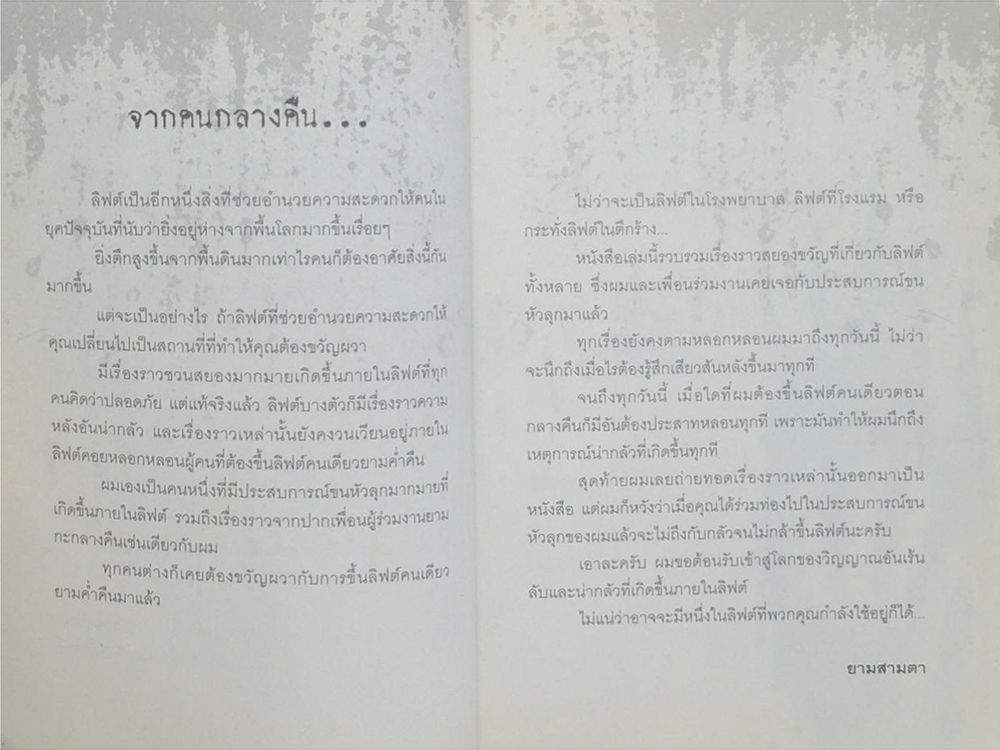 จากคนกลางคืน...
ลิฟต์เป็นอีกหนึ่งสิ่งที่ช่วยอำนวยความสะดวกให้คนใน
ยุคปัจจุบันที่นับว่ายิ่งอยู่ห่างจากพื้นโลกมากขึ้นเรื่อยๆ
ยิ่งตึกสูงขึ้นจากพื้นดินมากเท่าไรคนก็ต้องอาศัยสิ่งนี้กัน
มากขึ้น
แต่จะเป็นอย่างไร ถ้าลิฟต์ที่ช่วยอำนวยความสะดวกให้
คุณเปลี่ยนไปเป็นสถานที่ที่ทำให้คุณต้องขวัญผวา
มีเรื่องราวชวนสยองมากมายเกิดขึ้นภายในลิฟต์ที่ทุก
คนคิดว่าปลอดภัย แต่แท้จริงแล้ว ลิฟต์บางตัวก็มีเรื่องราวความ
หลังอันน่ากลัว และเรื่องราวเหล่านั้นยังคงวนเวียนอยู่ภายใน
ลิฟต์คอยหลอกหลอนผู้คนที่ต้องขึ้นลิฟต์คนเดียวยามค่ำคืน
ผมเองเป็นคนหนึ่งที่มีประสบการณ์ขนหัวลุกมากมายที่
เกิดขึ้นภายในลิฟต์ รวมถึงเรื่องราวจากปากเพื่อนผู้ร่วมงานยาม
กะกลางคืนเช่นเดียวกับผม
ทุกคนต่างก็เคยต้องขวัญผวากับการขึ้นลิฟต์คนเดียว
ยามค่ำคืนมาแล้ว
ไม่ว่าจะเป็นลิฟต์ในโรงพยาบาล ลิฟต์ที่โรงแรม หรือ
กระทั่งลิฟต์ในตึกร้าง...
หนังสือเล่มนี้รวบรวมเรื่องราวสยองขวัญที่เกี่ยวกับลิฟต์
ทั้งหลาย ซึ่งผมและเพื่อนร่วมงานเคยเจอกับประสบการณ์ขน
หัวลุกมาแล้ว
ทุกเรื่องยังคงตามหลอกหลอนผมมาถึงทุกวันนี้ ไม่ว่า
จะนึกถึงเมื่อไรต้องรู้สึกเสียวสันหลังขึ้นมาทุกที
จนถึงทุกวันนี้ เมื่อใดที่ผมต้องขึ้นลิฟต์คนเดียวตอน
กลางคืนก็มีอันต้องประสาทหลอนทุกที เพราะมันทำให้ผมนึกถึง
เหตุการณ์น่ากลัวที่เกิดขึ้นทุกที
สุดท้ายผมเลยถ่ายทอดเรื่องราวเหล่านั้นออกมาเป็น
หนังสือ แต่ผมก็หวังว่าเมื่อคุณได้ร่วมท่องไปในประสบการณ์ขน
หัวลุกของผมแล้วจะไม่ถึงกับกลัวจนไม่กล้าขึ้นลิฟต์นะครับ
เอาละครับ ผมขอต้อนรับเข้าสู่โลกของวิญญาณอันเร้น
ลับและน่ากลัวที่เกิดขึ้นภายในลิฟต์
ไม่แน่ว่าอาจจะมีหนึ่งในลิฟต์ที่พวกคุณกำลังใช้อยู่ก็ได้...
ยามสามตา